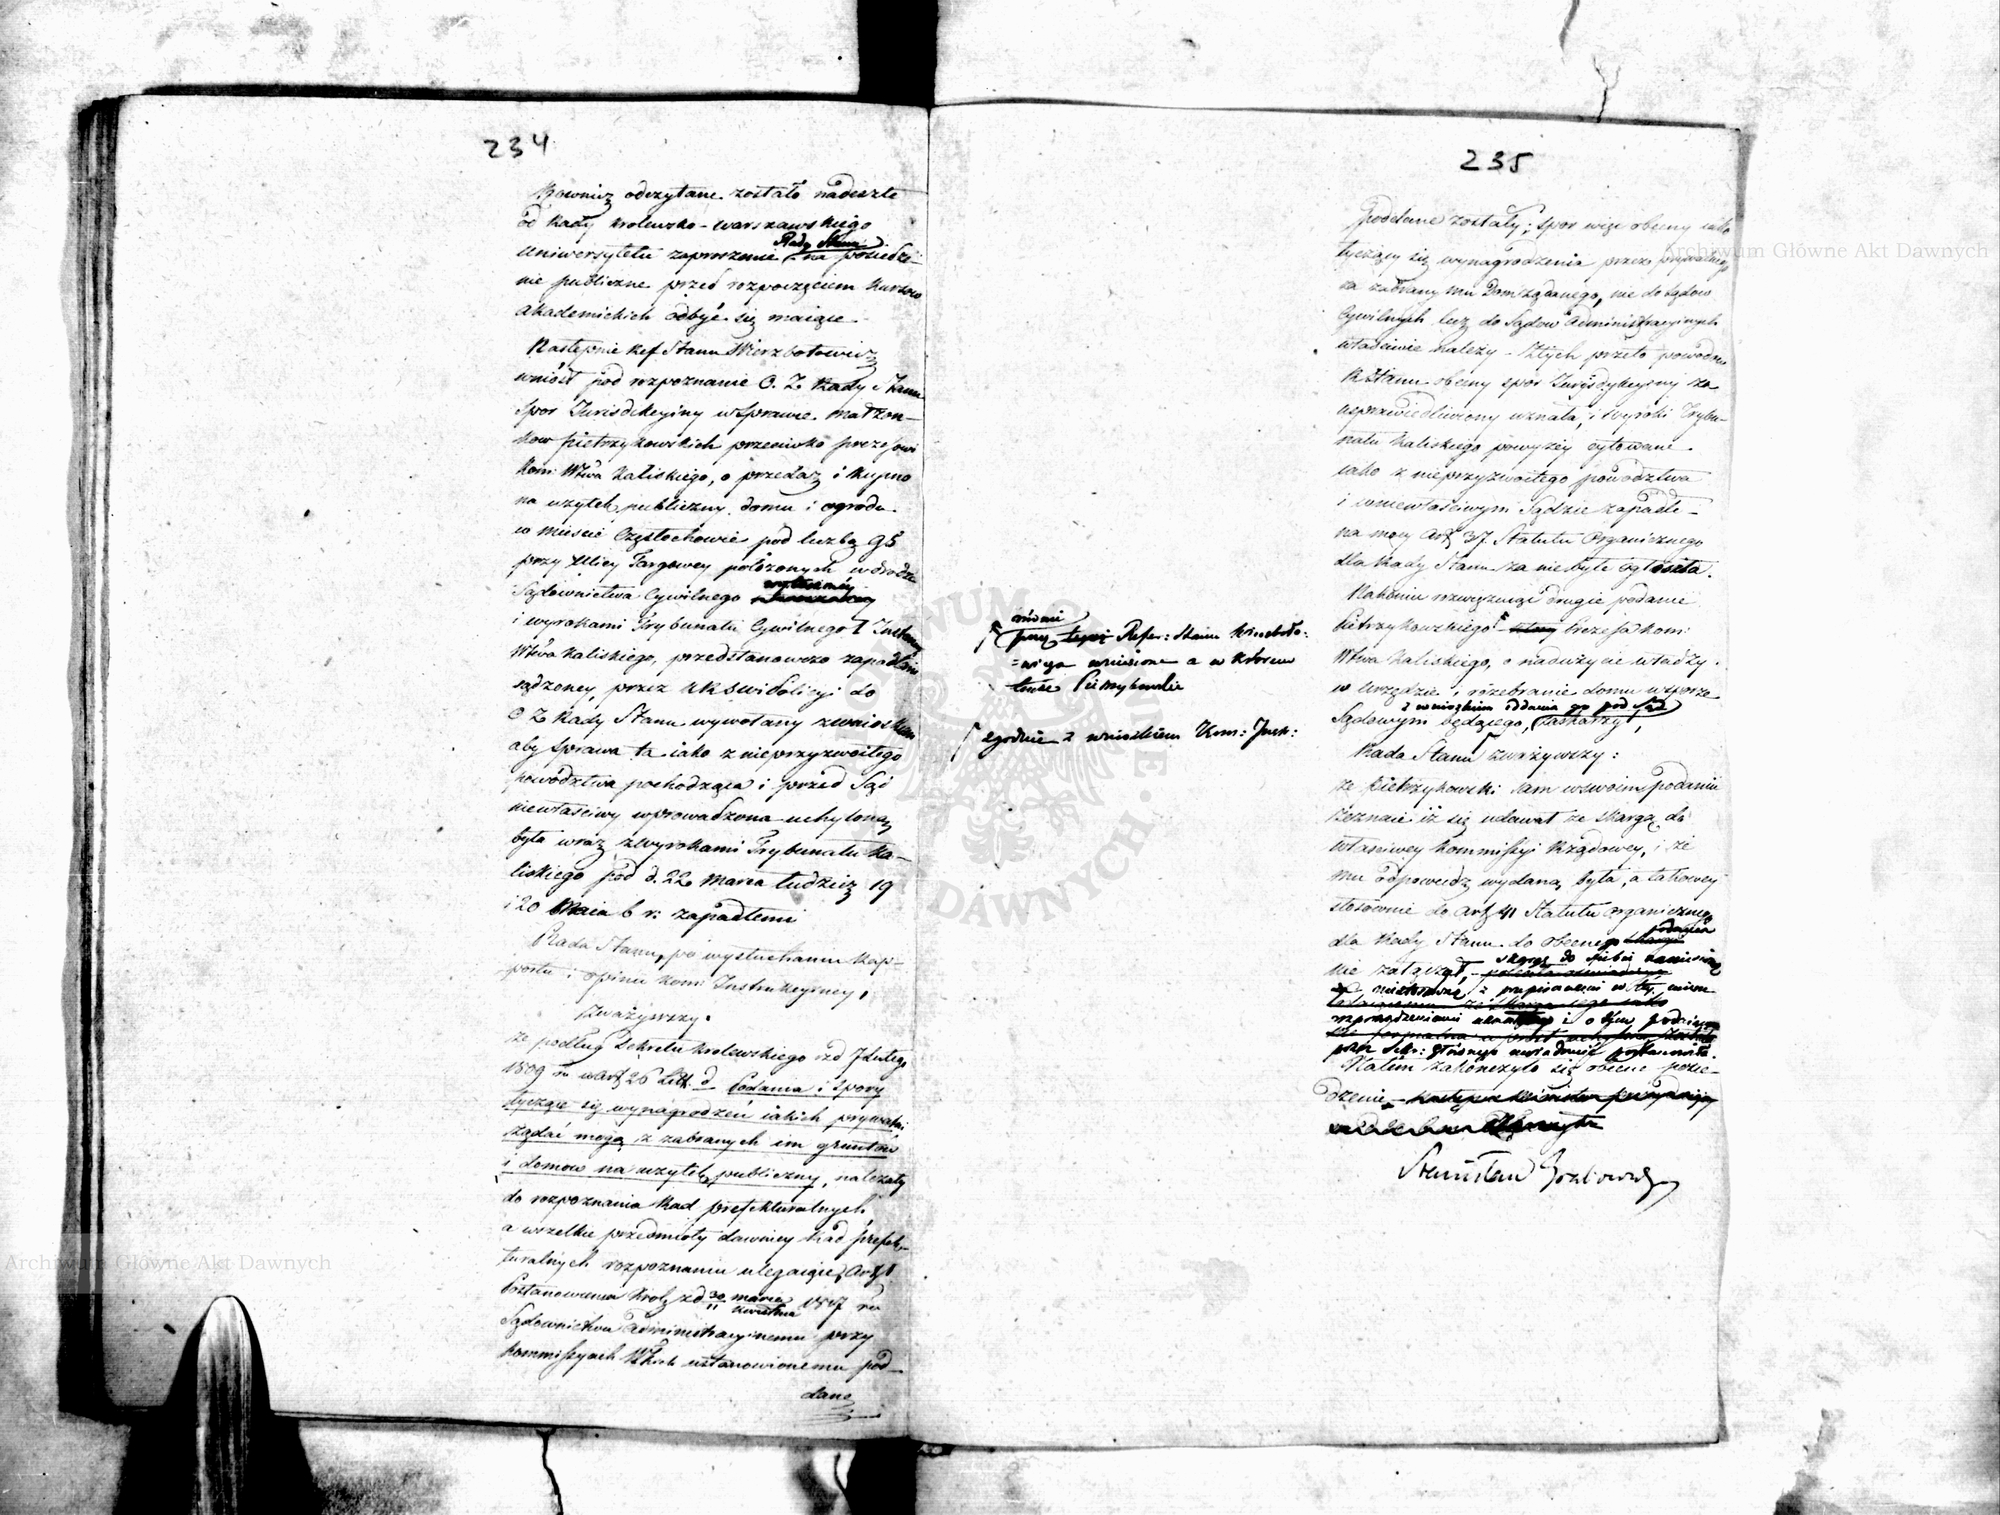 234
Rowniez odczytane zostało nadeszłe
od Rady Krolewsko-warszawskiego
Rady Stanu
Uniwersytetu zaproszenie na posiedze-
nie publiczne przed rozpoczęciem Kursow
akademickich odbyć się maiące.
Następnie Ref. Stanu Wierzbołowicz
wniósł pod rozpoznanie O. Z. Rady Stanu
Spor Jurisdikcyiny w Sprawie małżon-
kow Pietrzykowskich przeciwko Prezesowi
Kom: Wtwa Kaliskiego, o przedaż i kupno
na użytek publiczny domu i ogrodu
w mieście Częstochowie pod liczbą 95
przy Ulicy Targowey położonych w drodze
Sądownictwa Cywilnego
i wyrokami Trybunału Cywilnego I Instan
Wtwa Kaliskiego, przedstanowczo zapadłemi
sądzoney, przez KRSW i Policyi do
O Z Rady Stanu wywołany z wnioskiem
aby Sprawa ta iako z nieprzyzwoitego
powództwa pochodząca i przed Sąd
niewłaściwy wprowadzona uchyloną
była wraz z wyrokami Trybunału Ka-
liskiego pod d. 22 Marca tudzież 19
i 20 Maia b r: zapadłemi
Rada Stanu, po wysłuchaniu Rap-
portu i opinii Kom: Instrukcyiney,
Zważywszy.
że podług Dekretu Krolewskiego z d 7 Lutego
1809 r. w art 26 Litt. d Podania i Spory
tyczące się wynagrodzeń iakich prywatni
żądać mogą z zabranych im gruntow
i domow na użytek publiczny, należały
do rozpoznania Rad prefekturalnych
a wszelkie przedmioty dawniey Rad Prefek-
turalnych rozpoznaniu ulegaiące, Art 1
Postanowienia Krola z d 30 marca 1817 ro
11 kwietnia
Sądownictwu Administracyinemu przy
Kommissyach Wtkich ustanowionemu pod-
dane
Refer: Stanu Wierzboło-
wicza wniesione a w którem
Pietrzykowskie
zgodnie z wnioskiem Kom: Instr:
235
poddane zostały; spor więc obecny iako
tyczący się wynagrodzenia przez prywatnego
za zabrany mu Dom żądanego, nie do Sądow
Cywilnych lecz do Sądow Administracyinych
właściwie należy - Z tych przeto powodow
R. Stanu obecny spor Jurisdykcyiny za
usprawiedliwiony uznała, i wyroki Trybu-
nału Kaliskiego powyżey cytowane
iako z nieprzyzwoitego powództwa
i w niewłaściwym Sądzie zapadłe -
na mocy Art 37. Statutu Organicznego
dla Rady Stanu za niebyłe ogłosiła.
Nakoniec rozwiązuiąc drugie podanie
Pietrzykowskiego Prezesa Kom:
Wtwa Kaliskiego, o nadużycie władzy
w Urzędzie i rozebranie domu w sporze
z wnioskiem oddania go pod Sąd
Sądowym będącego, zaskarzył,
Rada Stanu zważywszy:
że Pietrzykowski sam w swoim podaniu
zeznaie iż się udawał ze skargą do
właściwey Kommissyi Rządowey, i że
mu odpowiedź wydaną była, a takowey
stosownie do Art 41 Statutu organicznego
podania
dla Rady Stanu do obecnego
skargę do siebie zaniesioną
nie załączył,
z przepisaniem w tey mierze
rozporządzeniami i o tem podaiącego
przez Sekr: Głównego uwiadomić postanowiła.
Natem zakończyło się obecne posie-
dzenie
Stanisław Grabowski
Archiwum Główne Akt Dawnych
Archiwum Główne Akt Dawnych